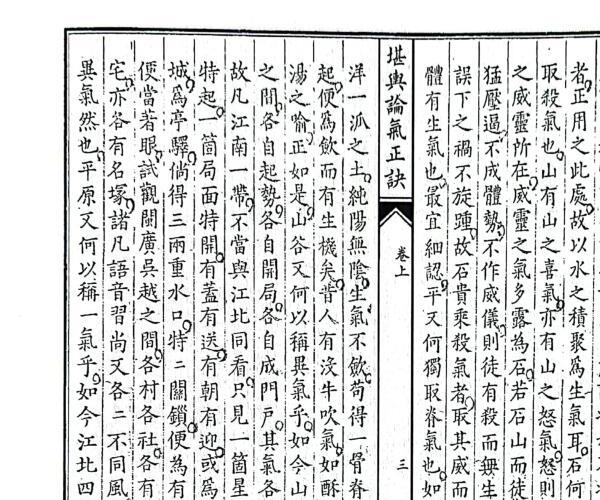 者正用之此處故以水之積聚爲生氣耳石何
取殺氣也山有山之喜氣亦有山之怒氣怒則
之威靈所在威靈之氣多露爲石若石山而徒
猛壓逼不成體勢不作威儀則徒有殺而無生
誤下之禍不旋踵故石貴乘殺氣者取其威而
體有生氣也最宜細認平又何獨取脊氣也如
堪輿論氣正訣
卷上
三
洋一派之土純陽無陰生氣不歛苟得一骨脊
起便爲歛而有生機矣昔人有沒牛吹氣如酥
湯之喻正如是山谷又何以稱異氣乎如今山
之間各自起勢各自開局各自成門戶其氣各
故凡江南一帶不當與江北同看只見一箇星
特起一箇局面特開有蓋有送有朝有迎或爲
城爲亭驛倘得三兩重水口特二關鎖便爲有
便當著眼試觀閩廣吳越之間各村各社各有
宅亦各有名塚諸凡語音習尚又各二不同風
異氣然也平原又何以稱一氣乎如今江北四